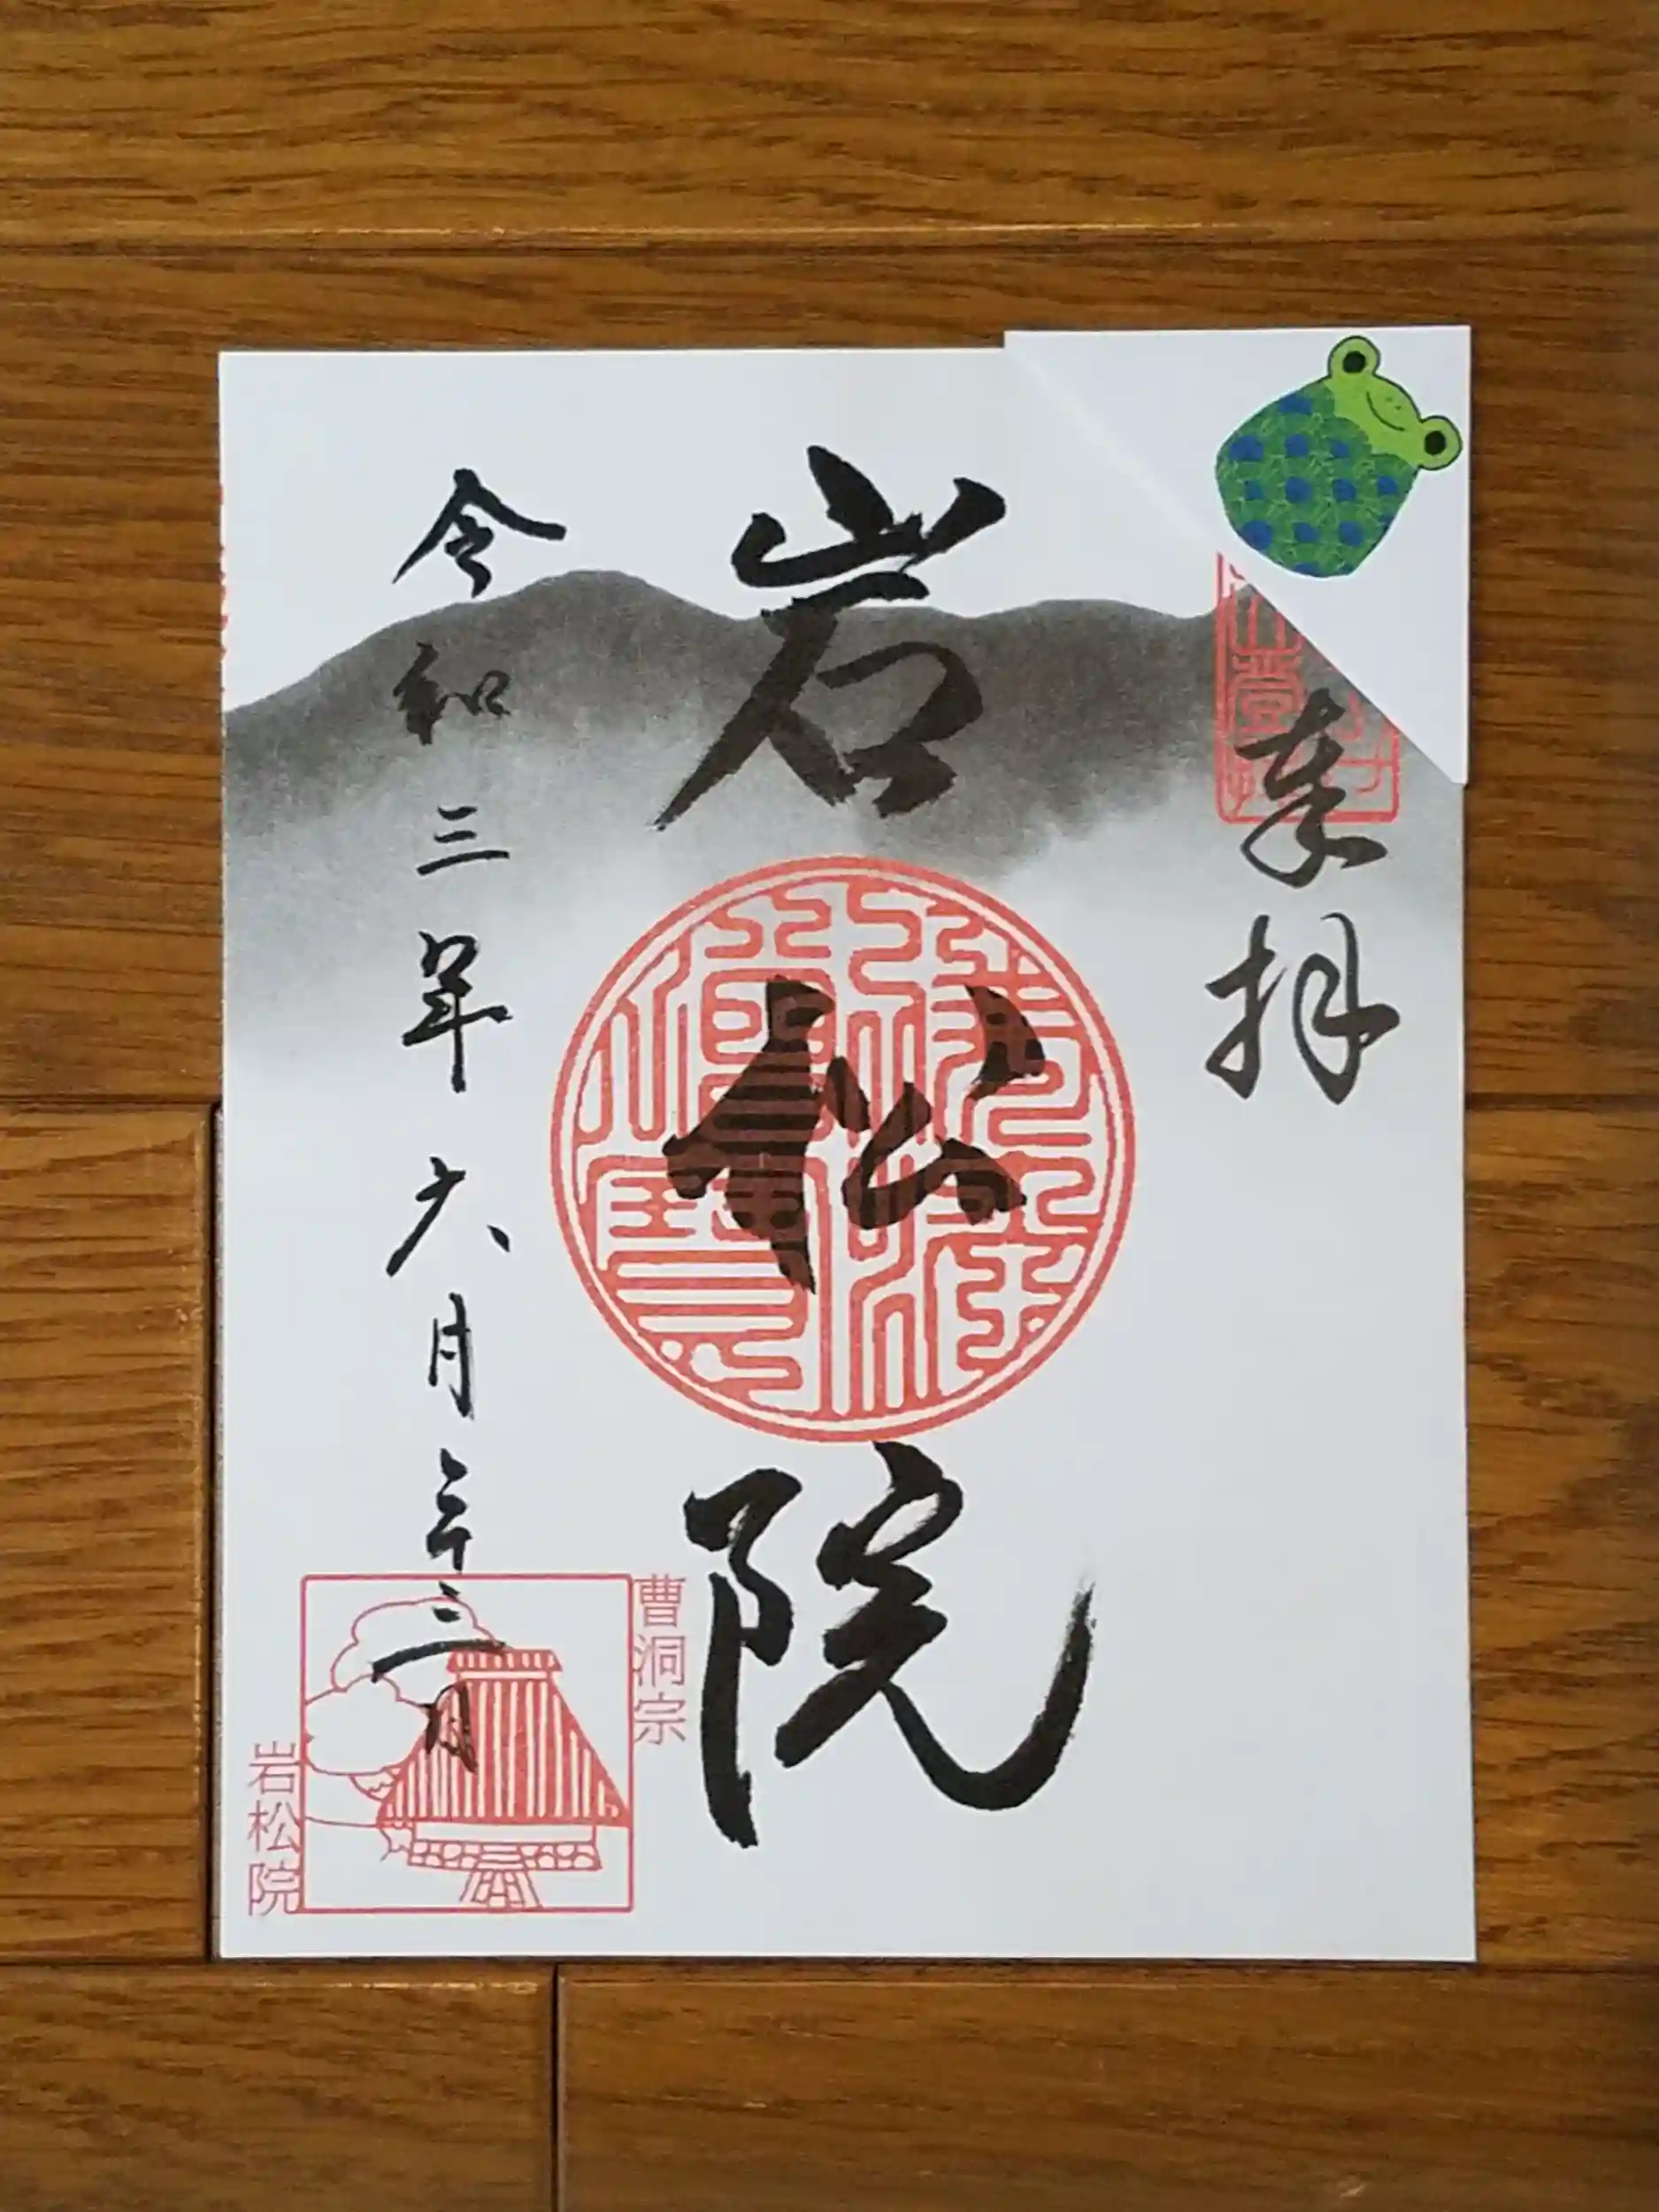 奉拝
岩松院
令和三年六月二十三日
曹洞宗
岩松院